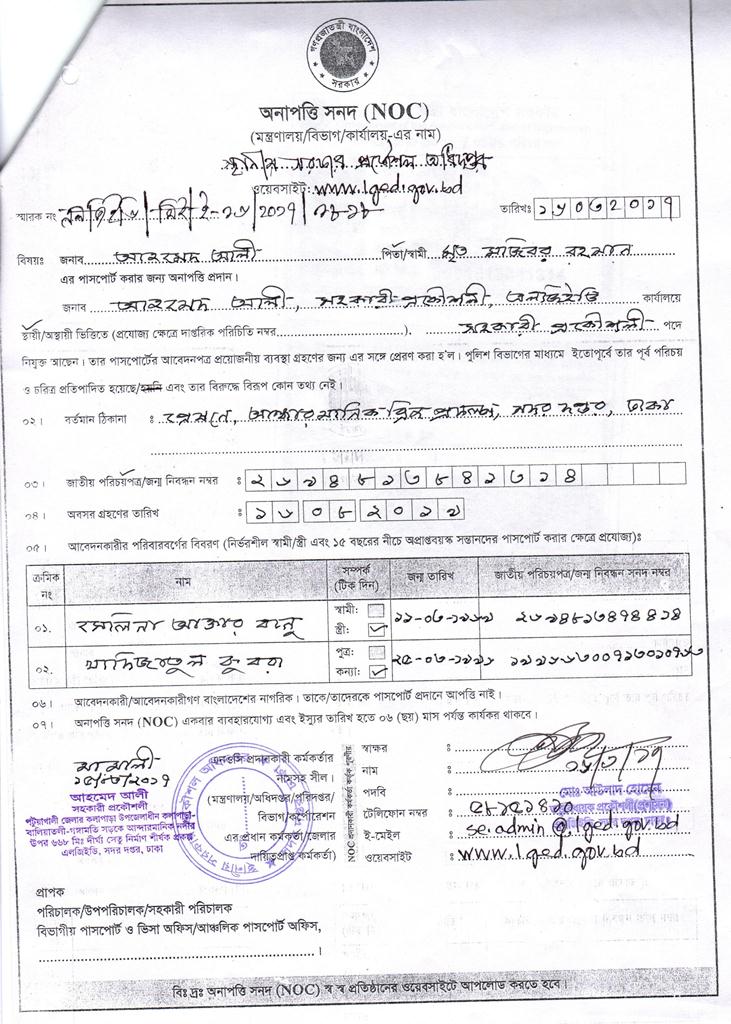 গণপ্রজাতন্ত্রী বাংলাদেশ
সরকার
অনাপত্তি সনদ (NOC)
(মন্ত্রণালয়/বিভাগ/কার্যালয়-এর নাম)
স্থানীয় সরকার প্রকৌশল অধিদপ্তর
ওয়েবসাইট: www.lged.gov.bd
স্মারক নং
তারিখঃ ১৫০৩২০১৭
বিষয়ঃ জনাব আহমেদ আলী পিতা/স্বামী মৃত রহমান
এর পাসপোর্ট করার জন্য অনাপত্তি প্রদান।
জনাব আহমেদ আলী, সহকারী প্রকৌশলী, এলজিইডি কার্যালয়ে
স্থায়ী/অস্থায়ী ভিত্তিতে (প্রযোজ্য ক্ষেত্রে দাপ্তরিক পরিচিতি নম্বর..............). সহকারী প্রকৌশলী পদে
নিযুক্ত আছেন। তার পাসপোর্টের আবেদনপত্র প্রয়োজনীয় ব্যবস্থা গ্রহণের জন্য এর সঙ্গে প্রেরণ করা হ'ল। পুলিশ বিভাগের মাধ্যমে ইতোপূর্বে তার পূর্ব পরিচয়
ও চরিত্র প্রতিপাদিত হয়েছে/হয়নি এবং তার বিরুদ্ধে বিরূপ কোন তথ্য নেই।
০২। বর্তমান ঠিকানা : সদর দপ্তর, ঢাকা
০৩। জাতীয় পরিচয়পত্র/জন্ম নিবন্ধন নম্বর :
০৪। অবসর গ্রহণের তারিখ :
০৫। আবেদনকারীর পরিবারবর্গের বিবরণ (নির্ভরশীল স্বামী/স্ত্রী এবং ১৫ বছরের নীচে অপ্রাপ্তবয়স্ক সন্তানদের পাসপোর্ট করার ক্ষেত্রে প্রযোজ্য)ঃ
ক্রমিক নং নাম সম্পর্ক (টিক দিন) জন্ম তারিখ জাতীয় পরিচয়পত্র/জন্ম নিবন্ধন সনদ নম্বর
০১. আক্তার বানু স্বামী: স্ত্রী: ✓
০২. খাদিজাতুল কুবরা পুত্র: কন্যা: ✓
০৬। আবেদনকারী/আবেদনকারীগণ বাংলাদেশের নাগরিক। তাকে/তাদেরকে পাসপোর্ট প্রদানে আপত্তি নাই।
০৭। অনাপত্তি সনদ (NOC) একবার ব্যবহারযোগ্য এবং ইস্যুর তারিখ হতে ০৬ (ছয়) মাস পর্যন্ত কার্যকর থাকবে।
আহমেদ আলী
সহকারী প্রকৌশলী
পটুয়াখালী জেলার কলাপাড়া উপজেলাধীন কলাপাড়া-
বালিয়াতলী-গঙ্গামতি সড়কে আন্ধারমানিক নদীর
উপর ৬৬৮ মিঃ দীর্ঘ্য সেতু নির্মাণ শীর্ষক প্রকল্প
এলজিইডি, সদর দপ্তর, ঢাকা
এনওসি প্রদানকারী কর্মকর্তার
নামসহ সীল।
(মন্ত্রণালয়/অধিদপ্তর/পরিদপ্তর/
বিভাগ/কর্পোরেশন
এর প্রধান কর্মকর্তা/জেলার
দায়িত্বপ্রাপ্ত কর্মকর্তা)
স্বাক্ষর :
নাম :
পদবি :
টেলিফোন নম্বর :
ই-মেইল : se.admin@lged.gov.bd
ওয়েবসাইট : www.lged.gov.bd
প্রাপক
পরিচালক/উপপরিচালক/সহকারী পরিচালক
বিভাগীয় পাসপোর্ট ও ভিসা অফিস/আঞ্চলিক পাসপোর্ট অফিস,
.................................................।
বিঃ দ্রঃ অনাপত্তি সনদ (NOC) স্ব স্ব প্রতিষ্ঠানের ওয়েবসাইটে আপলোড করতে হবে।